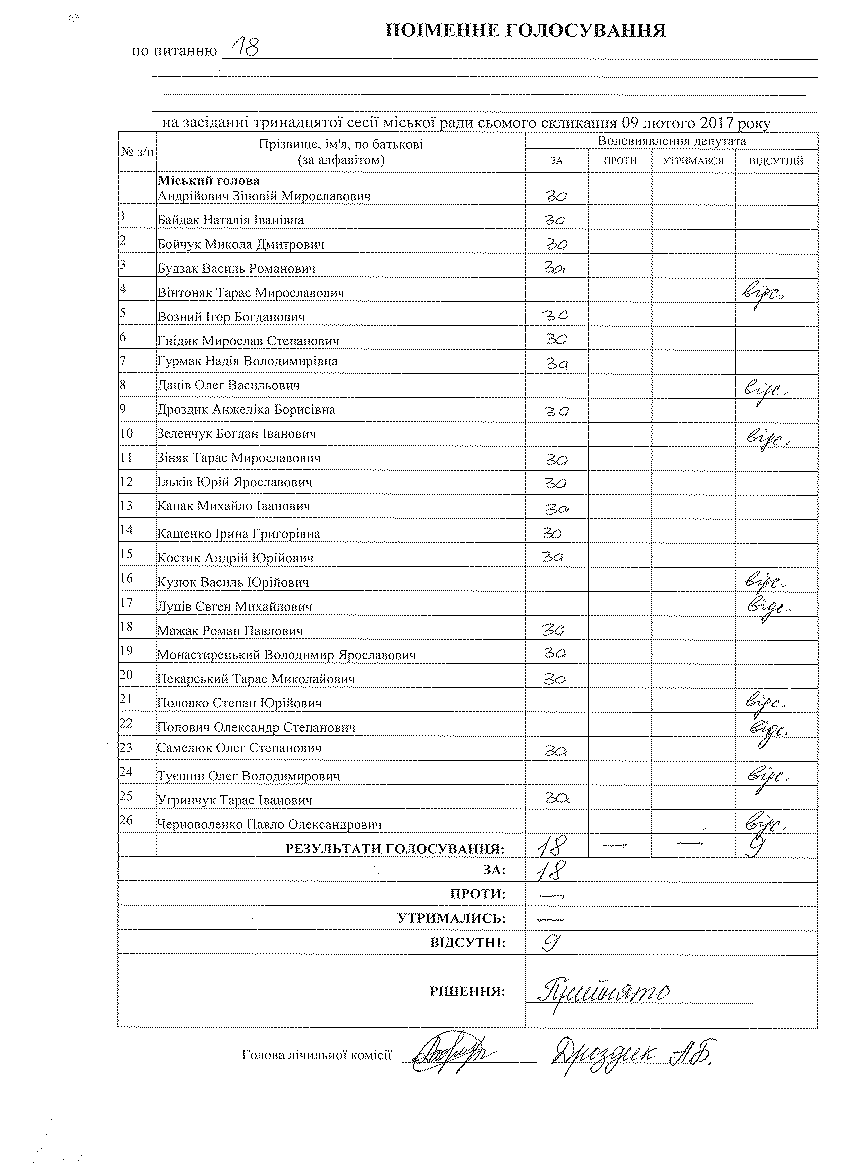 ПОІМЕННЕ ГОЛОСУВАННЯ
по питанню 18
на засіданні тринадцятої сесії міської ради сьомого скликання 09 лютого 2017 року
№ з/п Прізвище, ім'я, по батькові (за алфавітом) Волевиявлення депутата
ЗА ПРОТИ УТРИМАВСЯ ВІДСУТНІЙ
Міський голова
Андрійович Зіновій Мирославович за
1 Байдак Наталія Іванівна за
2 Бойчук Микола Дмитрович за
3 Будзак Василь Романович за
4 Вінтоняк Тарас Мирославович відс.
5 Возний Ігор Богданович за
6 Гнідик Мирослав Степанович за
7 Гурмак Надія Володимирівна за
8 Даців Олег Васильович відс.
9 Дроздик Анжеліка Борисівна за
10 Зеленчук Богдан Іванович відс.
11 Зіняк Тарас Мирославович за
12 Ільків Юрій Ярославович за
13 Капак Михайло Іванович за
14 Кащенко Ірина Григорівна за
15 Костик Андрій Юрійович за
16 Кузюк Василь Юрійович відс.
17 Луців Євген Михайлович відс.
18 Мажак Роман Павлович за
19 Монастирецький Володимир Ярославович за
20 Пекарський Тарас Миколайович за
21 Половко Степан Юрійович відс.
22 Попович Олександр Степанович відс.
23 Самелюк Олег Степанович за
24 Туєшин Олег Володимирович відс.
25 Угринчук Тарас Іванович за
26 Черноволенко Павло Олександрович відс.
РЕЗУЛЬТАТИ ГОЛОСУВАННЯ: 18 — — 9
ЗА: 18
ПРОТИ: —
УТРИМАЛИСЬ: —
ВІДСУТНІ: 9
РІШЕННЯ: Прийнято
Голова лічильної комісії Дроздик А.Б.